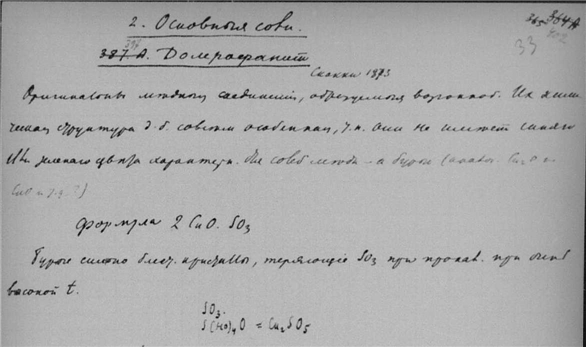 2. Основныя соли.
364А
365
402
33
387А. Долерофанит
395
Скакки 1873
Оригинальны медныя соединения, образуемыя возгонкой. Их хими-
ческая структура д. б. совсем особенная, т.к. они не имеют синяго
или зеленаго цвета характерн. для солей меди - а бурые Cu₂O и
CuO и т.д.?)
Формула 2CuO.SO₃
Бурые сильно блест. кристаллы, теряющие SO₃ при прокал. при очень
высокой t.
SO₃.
S(HO)₄O = Cu₂SO₅